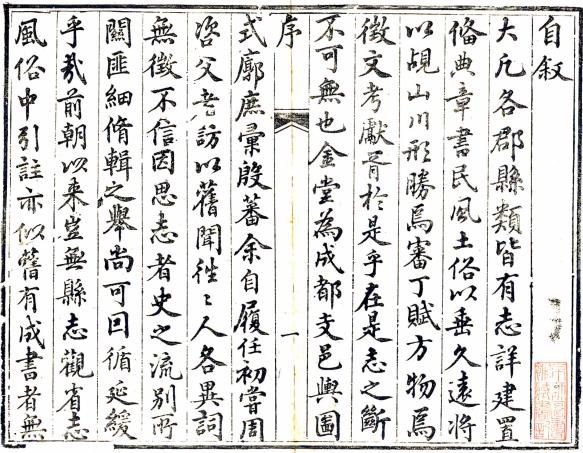 自叙
大凡各郡縣類皆有志詳建置
俻典章書民風土俗以垂久遠將
以覘山川形勝焉審丁賦方物焉
徵文考獻胥於是乎在是志之斷
不可無也金堂為成都支邑輿圖
序 一
式廓庶彙殷蕃余自履任初嘗周
咨父老訪以舊聞徃〻人各異詞
無徵不信因思志者史之流別所
關匪細脩輯之舉尚可囙循延緩
乎哉前朝以来豈無縣志觀省志
風俗中引註亦似舊有成書者無